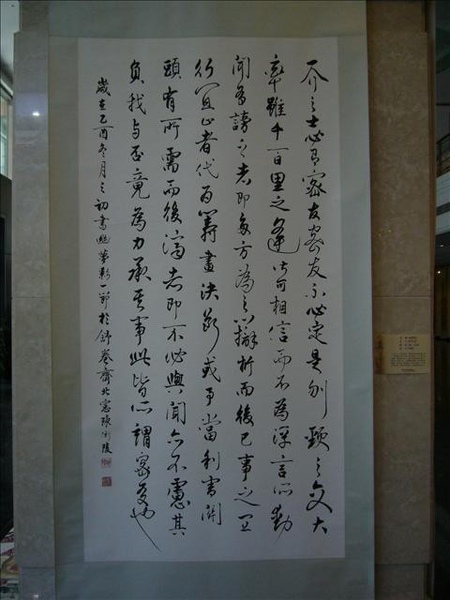 一介之士必有密友密友不必定是刎頸之交大
率雖千百里之遙皆可相信而不為浮言所動
聞有謗之者即多方為之辯析而後已事之宜
行宜止者代為籌畫決斷或事當利害關
頭有所需而後濟者即不必與聞亦不慮其
負我與否竟為力承其事此皆所謂密友也
歲在乙酉冬月之初書幽夢影一節於舒卷齋北窗